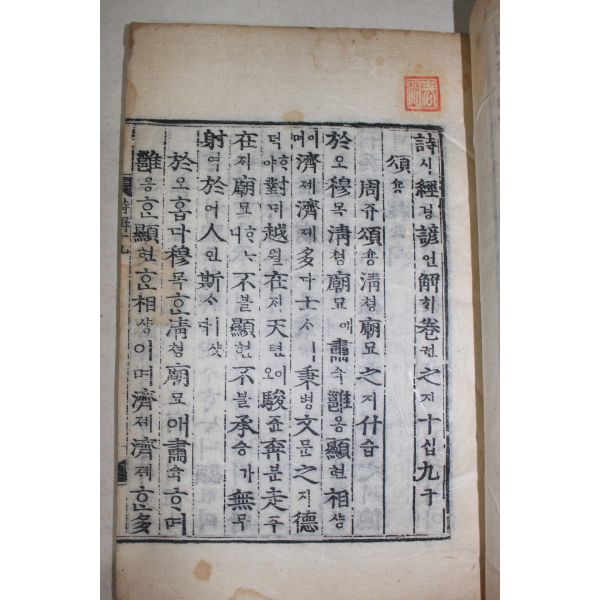 詩시經경諺언解ᄒᆡ卷권之지十십九구
頌숑
周쥬頌숑淸쳥廟묘之지什습
於오穆목淸쳥廟묘애肅슉雝옹顯현相샹
이며濟졔濟졔多다士ᄉᆞㅣ秉병文문之지德
덕ᄒᆞ야對ᄃᆡ越월在ᄌᆡ天텬이오駿쥰奔분走주
在ᄌᆡ廟묘ᄒᆞᄂᆞ니不블顯현不블承승가無무
射역於어人인斯ᄉᆞ샷다
於오홉다穆목ᄒᆞᆫ淸쳥廟묘애肅슉ᄒᆞ며
雝옹ᄒᆞᆫ顯현ᄒᆞᆫ相샹이며濟졔濟졔ᄒᆞᆫ多